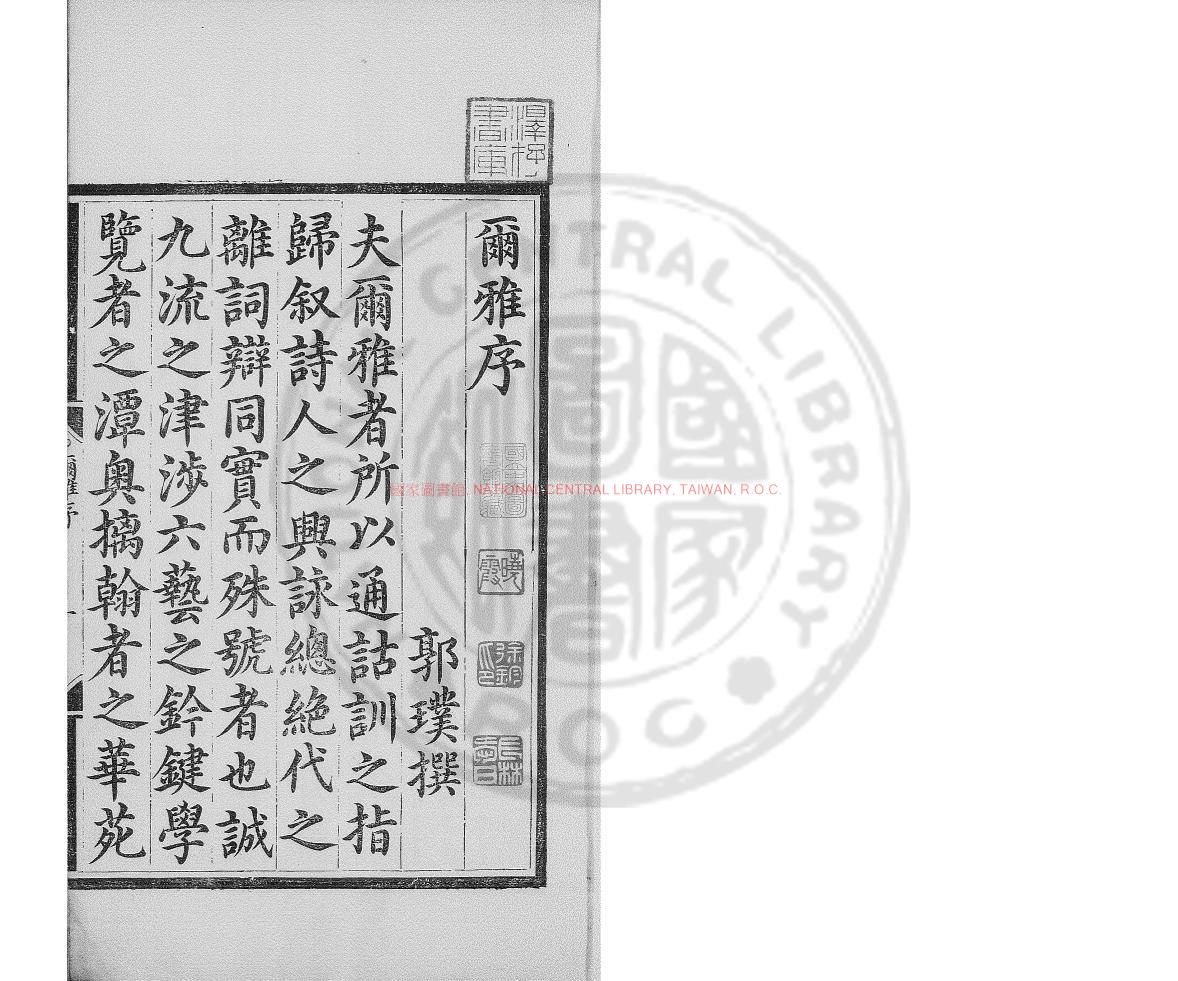 爾雅序
郭璞撰
夫爾雅者所以通詁訓之指
歸叙詩人之興詠總絶代之
離詞辯同實而殊號者也誠
九流之津涉六藝之鈐鍵學
覽者之潭奥摛翰者之華苑
爾雅序
澤存書庫
曉霞
國家圖書館, NATIONAL CENTRAL LIBRARY, TAIWAN, R.O.C.
CENTRAL LIBRARY
國家圖書
ROC